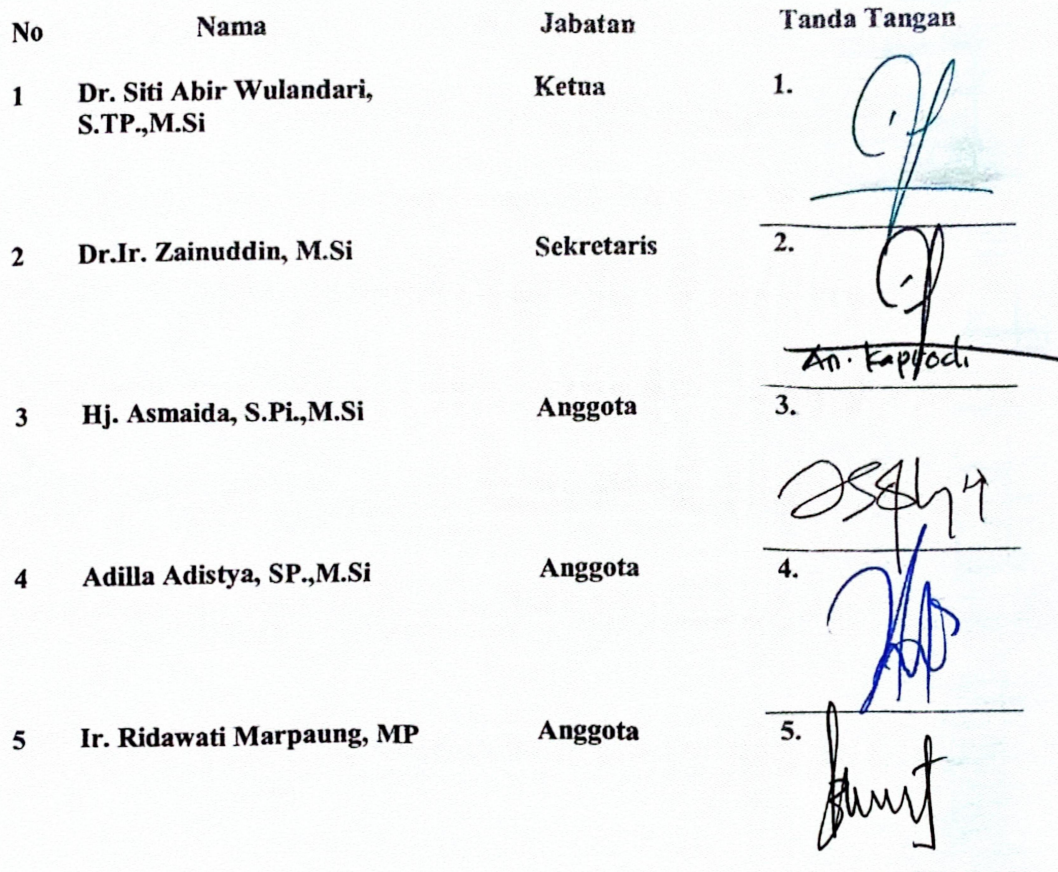 No Nama Jabatan Tanda Tangan
1 Dr. Siti Abir Wulandari, Ketua 1.
S.TP.,M.Si
2 Dr.Ir. Zainuddin, M.Si Sekretaris 2.
An. Kaprodi
3 Hj. Asmaida, S.Pi.,M.Si Anggota 3.
4 Adilla Adistya, SP.,M.Si Anggota 4.
5 Ir. Ridawati Marpaung, MP Anggota 5.